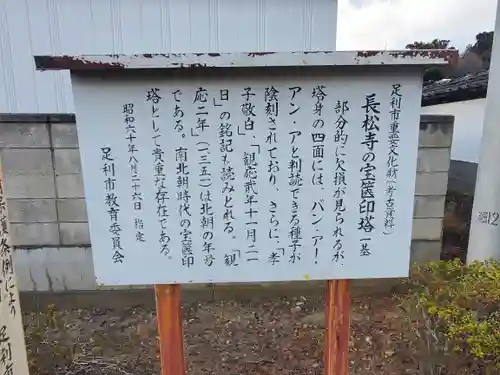 足利市重要文化財(考古資料)
長松寺の宝篋印塔 一基
部分的に欠損が見られるが、
塔身の四面には、バン・アー・
アン・アと判読できる種子が
陰刻されており、さらに、「孝
子敬白、「観応弐年十一月二一
日」の銘記も読みとれる。「観
応二年」(一三五一)は北朝の年号
である。南北朝時代の宝篋印
塔として貴重な存在である。
昭和六十年八月二十六日 指定
足利市教育委員会
足利